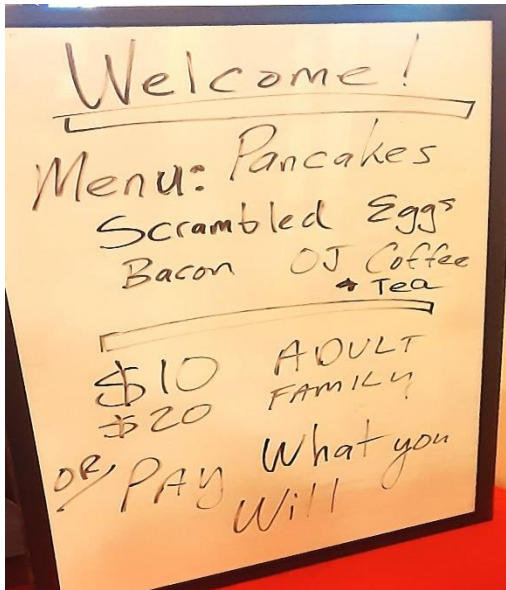 Welcome!
Menu: Pancakes
Scrambled Eggs
Bacon OJ Coffee
+ Tea
$10 ADULT
$20 FAMILY
OR/ PAY What you
Will